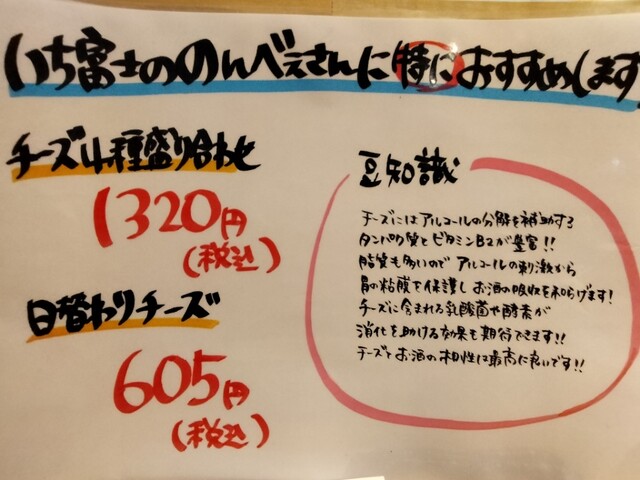 いち富士ののんべぇさんに特におすすめします
チーズ4種盛り合わせ
1320円
(税込)
日替わりチーズ
605円
(税込)
豆知識
チーズにはアルコールの分解を補助する
タンパク質とビタミンB2が豊富!!
脂質も多いので アルコールの刺激から
胃の粘膜を保護し お酒の吸収を和らげます!
チーズに含まれる乳酸菌や酵素が
消化を助ける効果も期待できます!!
チーズとお酒の相性は最高に良いです!!